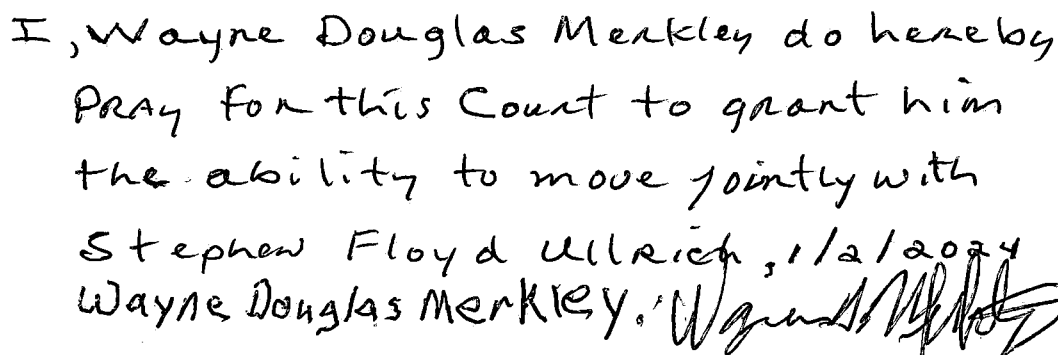 I, Wayne Douglas Merkley do hereby
PRAY for this Court to grant him
the ability to move jointly with
Stephen Floyd Ullrich, 1/2/2024
Wayne Douglas Merkley.